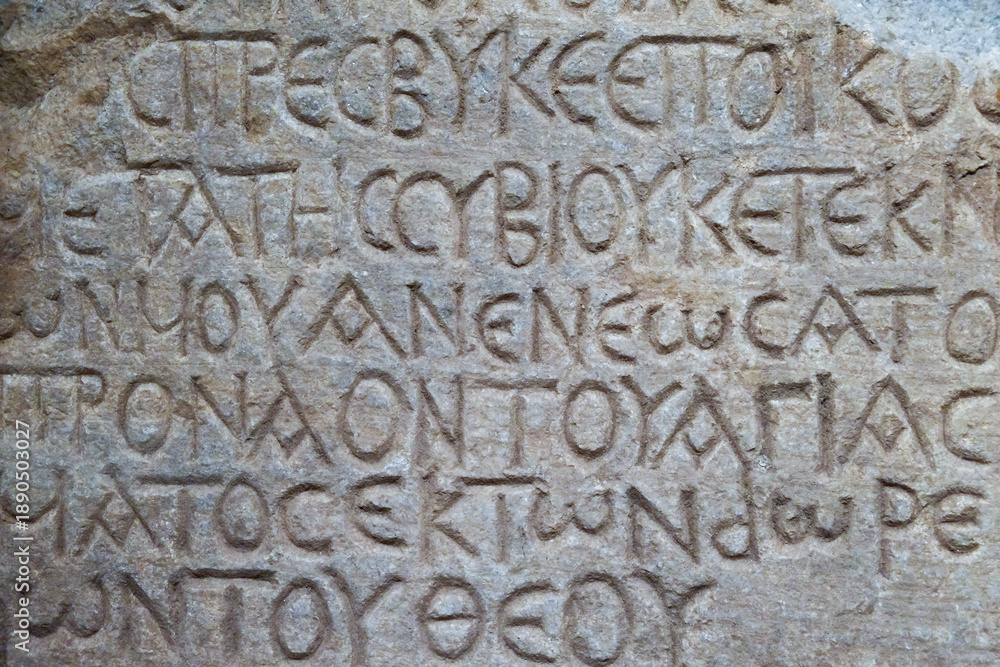 CΠΡΕCΒΥΚΕΕΠΟΙΚΟC
ΜΕΤΑΤΗCCΥΒΙΟΥΚΕΤΕΚΝ
ΩΝΜΟΥΑΝΕΝΕΩCΑΤΟ
ΠΡΟΝΑΟΝΤΟΥΑΓΙΑC
ΜΑΤΟCΕΚΤΩΝΔΩΡΕ
ΩΝΤΟΥΘΕΟΥ
Adobe Stock | #1890503027